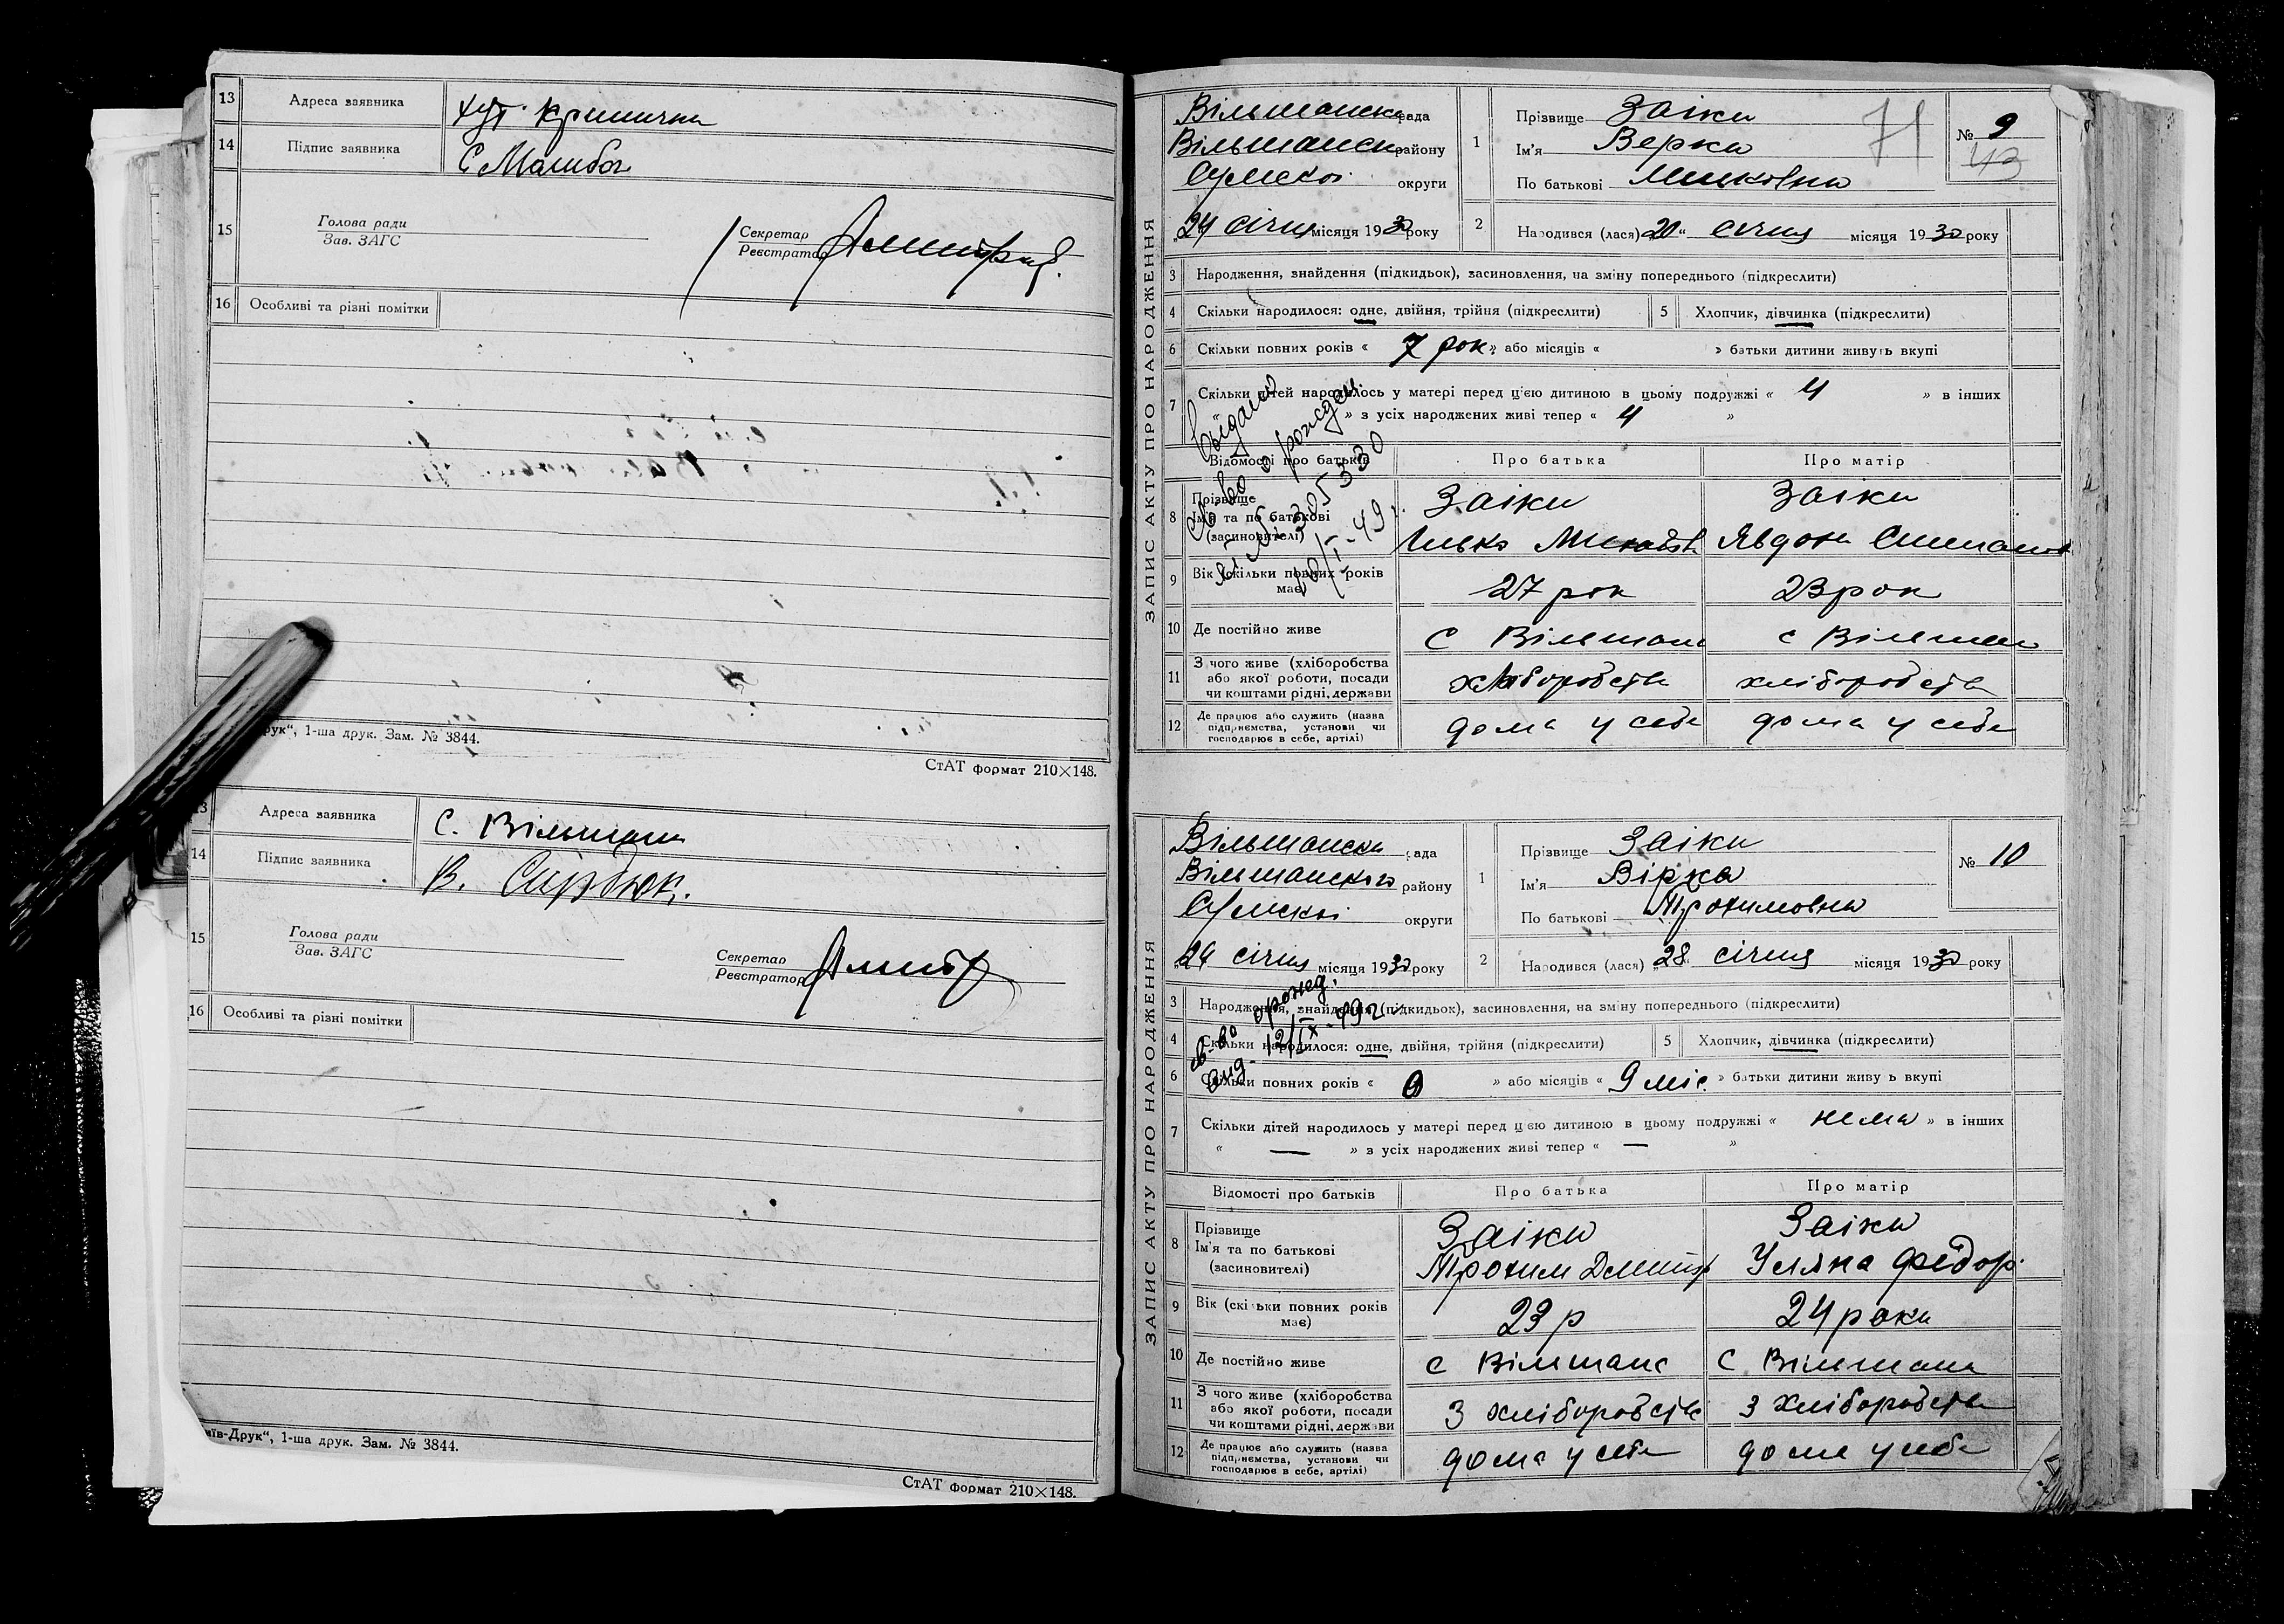 13 Адреса заявника хут. Криничка
14 Підпис заявника
15 Голова ради
Зав. ЗАГС
Секретар
Реєстратор
16 Особливі та різні помітки
рук“, 1-ша друк. Зам. № 3844.
СтАТ формат 210×148.
13 Адреса заявника с. Вільшана
14 Підпис заявника В. Сірдюк.
15 Голова ради
Зав. ЗАГС
Секретар
Реєстратор
16 Особливі та різні помітки
їв-Друк“, 1-ша друк. Зам. № 3844.
СтАТ формат 210×148.
ЗАПИС АКТУ ПРО НАРОДЖЕННЯ
Вільшанска рада
Вільшанськ району
Сумскоі округи
„24 січня місяця 1930 року
1 Прізвище Заіка
Ім'я Верка
По батькові
71
№ 9
43
2 Народився (лася) „20“ січня місяця 1930 року
3 Народження, знайдення (підкидьок), засиновлення, на зміну попереднього (підкреслити)
4 Скільки народилося: одне, двійня, трійня (підкреслити) 5 Хлопчик, дівчинка (підкреслити)
6 Скільки повних років « 7 рок » або місяців « » батьки дитини живуть вкупі
7 Скільки дітей народилось у матері перед цією дитиною в цьому подружжі « 4 » в інших
« » з усіх народжених живі тепер « 4 »
Відомості про батьків Про батька Про матір
8 Прізвище
Ім'я та по батькові
(засиновителі)
Заіка Заіка
Явдоха
9 Вік (скільки повних років має) 27 рок 23 рок
10 Де постійно живе с Вільшана с Вільшан
11 З чого живе (хліборобства
або якої роботи, посади
чи коштами рідні, держави
хліборобств хліборобств
12 Де працює або служить (назва
підприємства, установи чи
господарює в себе, артілі)
дома у себе дома у себе
ЗАПИС АКТУ ПРО НАРОДЖЕННЯ
Вільшанска рада
Вільшанского району
Сумскоі округи
„24 січня місяця 1930 року
1 Прізвище Заіка
Ім'я Вірка
По батькові Трохимовна
№ 10
2 Народився (лася) „28“ січня місяця 1930 року
3 Народження, знайдення (підкидьок), засиновлення, на зміну попереднього (підкреслити)
4 Скільки народилося: одне, двійня, трійня (підкреслити) 5 Хлопчик, дівчинка (підкреслити)
6 Скільки повних років « 0 » або місяців « 9 міс. » батьки дитини живу ь вкупі
7 Скільки дітей народилось у матері перед цією дитиною в цьому подружжі « нема » в інших
« — » з усіх народжених живі тепер « — »
Відомості про батьків Про батька Про матір
8 Прізвище
Ім'я та по батькові
(засиновителі)
Заіка Заіка
Трохим Дмитр Уляна Федор.
9 Вік (скільки повних років має) 23 р 24 роки
10 Де постійно живе с Вілшана с Вілшана
11 З чого живе (хліборобства
або якої роботи, посади
чи коштами рідні, держави
З хліборобств З хліборобств
12 Де працює або служить (назва
підприємства, установи чи
господарює в себе, артілі)
дома у себе дома у себе